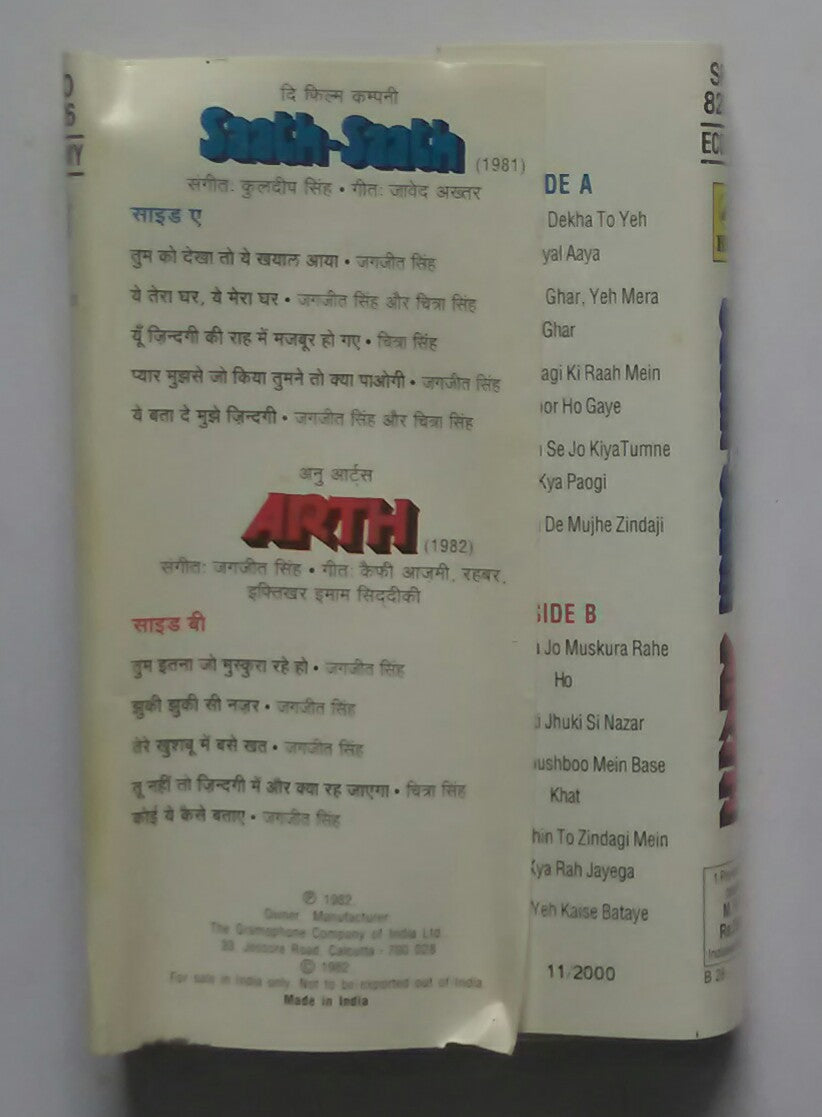 दि फिल्म कम्पनी
Saath-Saath (1981)
संगीतः कुलदीप सिंह • गीतः जावेद अख्तर
साइड ए
तुम को देखा तो ये खयाल आया • जगजीत सिंह
ये तेरा घर, ये मेरा घर • जगजीत सिंह और चित्रा सिंह
यूँ ज़िन्दगी की राह में मजबूर हो गए • चित्रा सिंह
प्यार मुझसे जो किया तुमने तो क्या पाओगी • जगजीत सिंह
ये बता दे मुझे ज़िन्दगी • जगजीत सिंह और चित्रा सिंह
अनु आर्ट्स
ARTH (1982)
संगीतः जगजीत सिंह • गीतः कैफी आज़मी, रहबर,
इफ्तिखर इमाम सिद्दीकी
साइड बी
तुम इतना जो मुस्कुरा रहे हो • जगजीत सिंह
झुकी झुकी सी नज़र • जगजीत सिंह
तेरे खुशबू में बसे खत • जगजीत सिंह
तू नहीं तो ज़िन्दगी में और क्या रह जाएगा • चित्रा सिंह
कोई ये कैसे बताए • जगजीत सिंह
Ⓟ 1982
Owner Manufacturer
The Gramophone Company of India Ltd.
33, Jessore Road, Calcutta - 700 028
© 1982
For sale in India only. Not to be exported out of India
Made in India
DE A
Dekha To Yeh
yal Aaya
Ghar, Yeh Mera
Ghar
agi Ki Raah Mein
oor Ho Gaye
Se Jo KiyaTumne
Kya Paogi
De Mujhe Zindaji
SIDE B
Jo Muskura Rahe
Ho
i Jhuki Si Nazar
ushboo Mein Base
Khat
hin To Zindagi Mein
Kya Rah Jayega
Yeh Kaise Bataye
11/2000
82